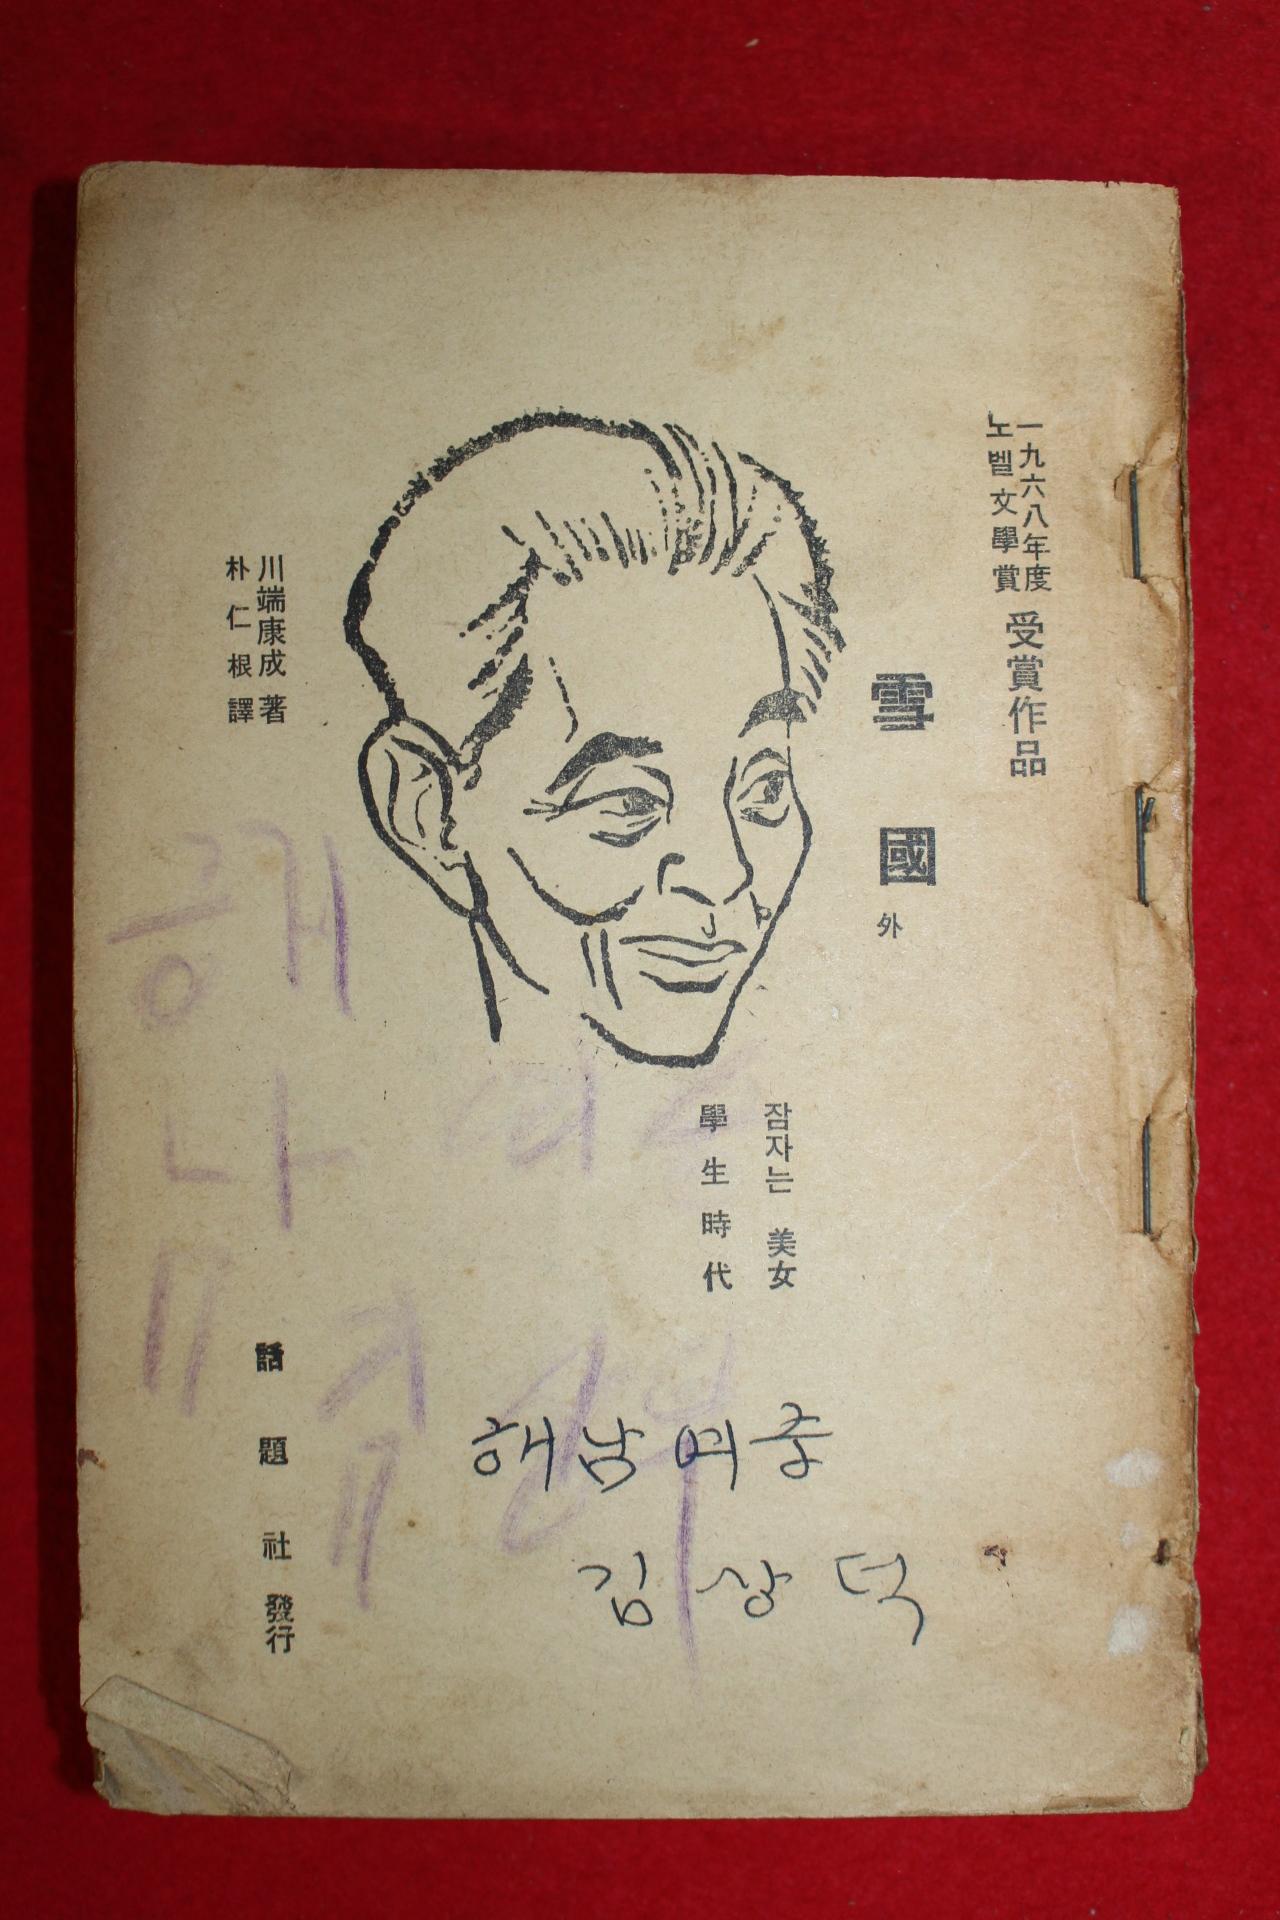 一九六八年度
노벨文學賞
受賞作品
雪國 外
잠자는 美女
學生時代
川端康成 著
朴仁根 譯
話題社 發行
해남여중
김상덕